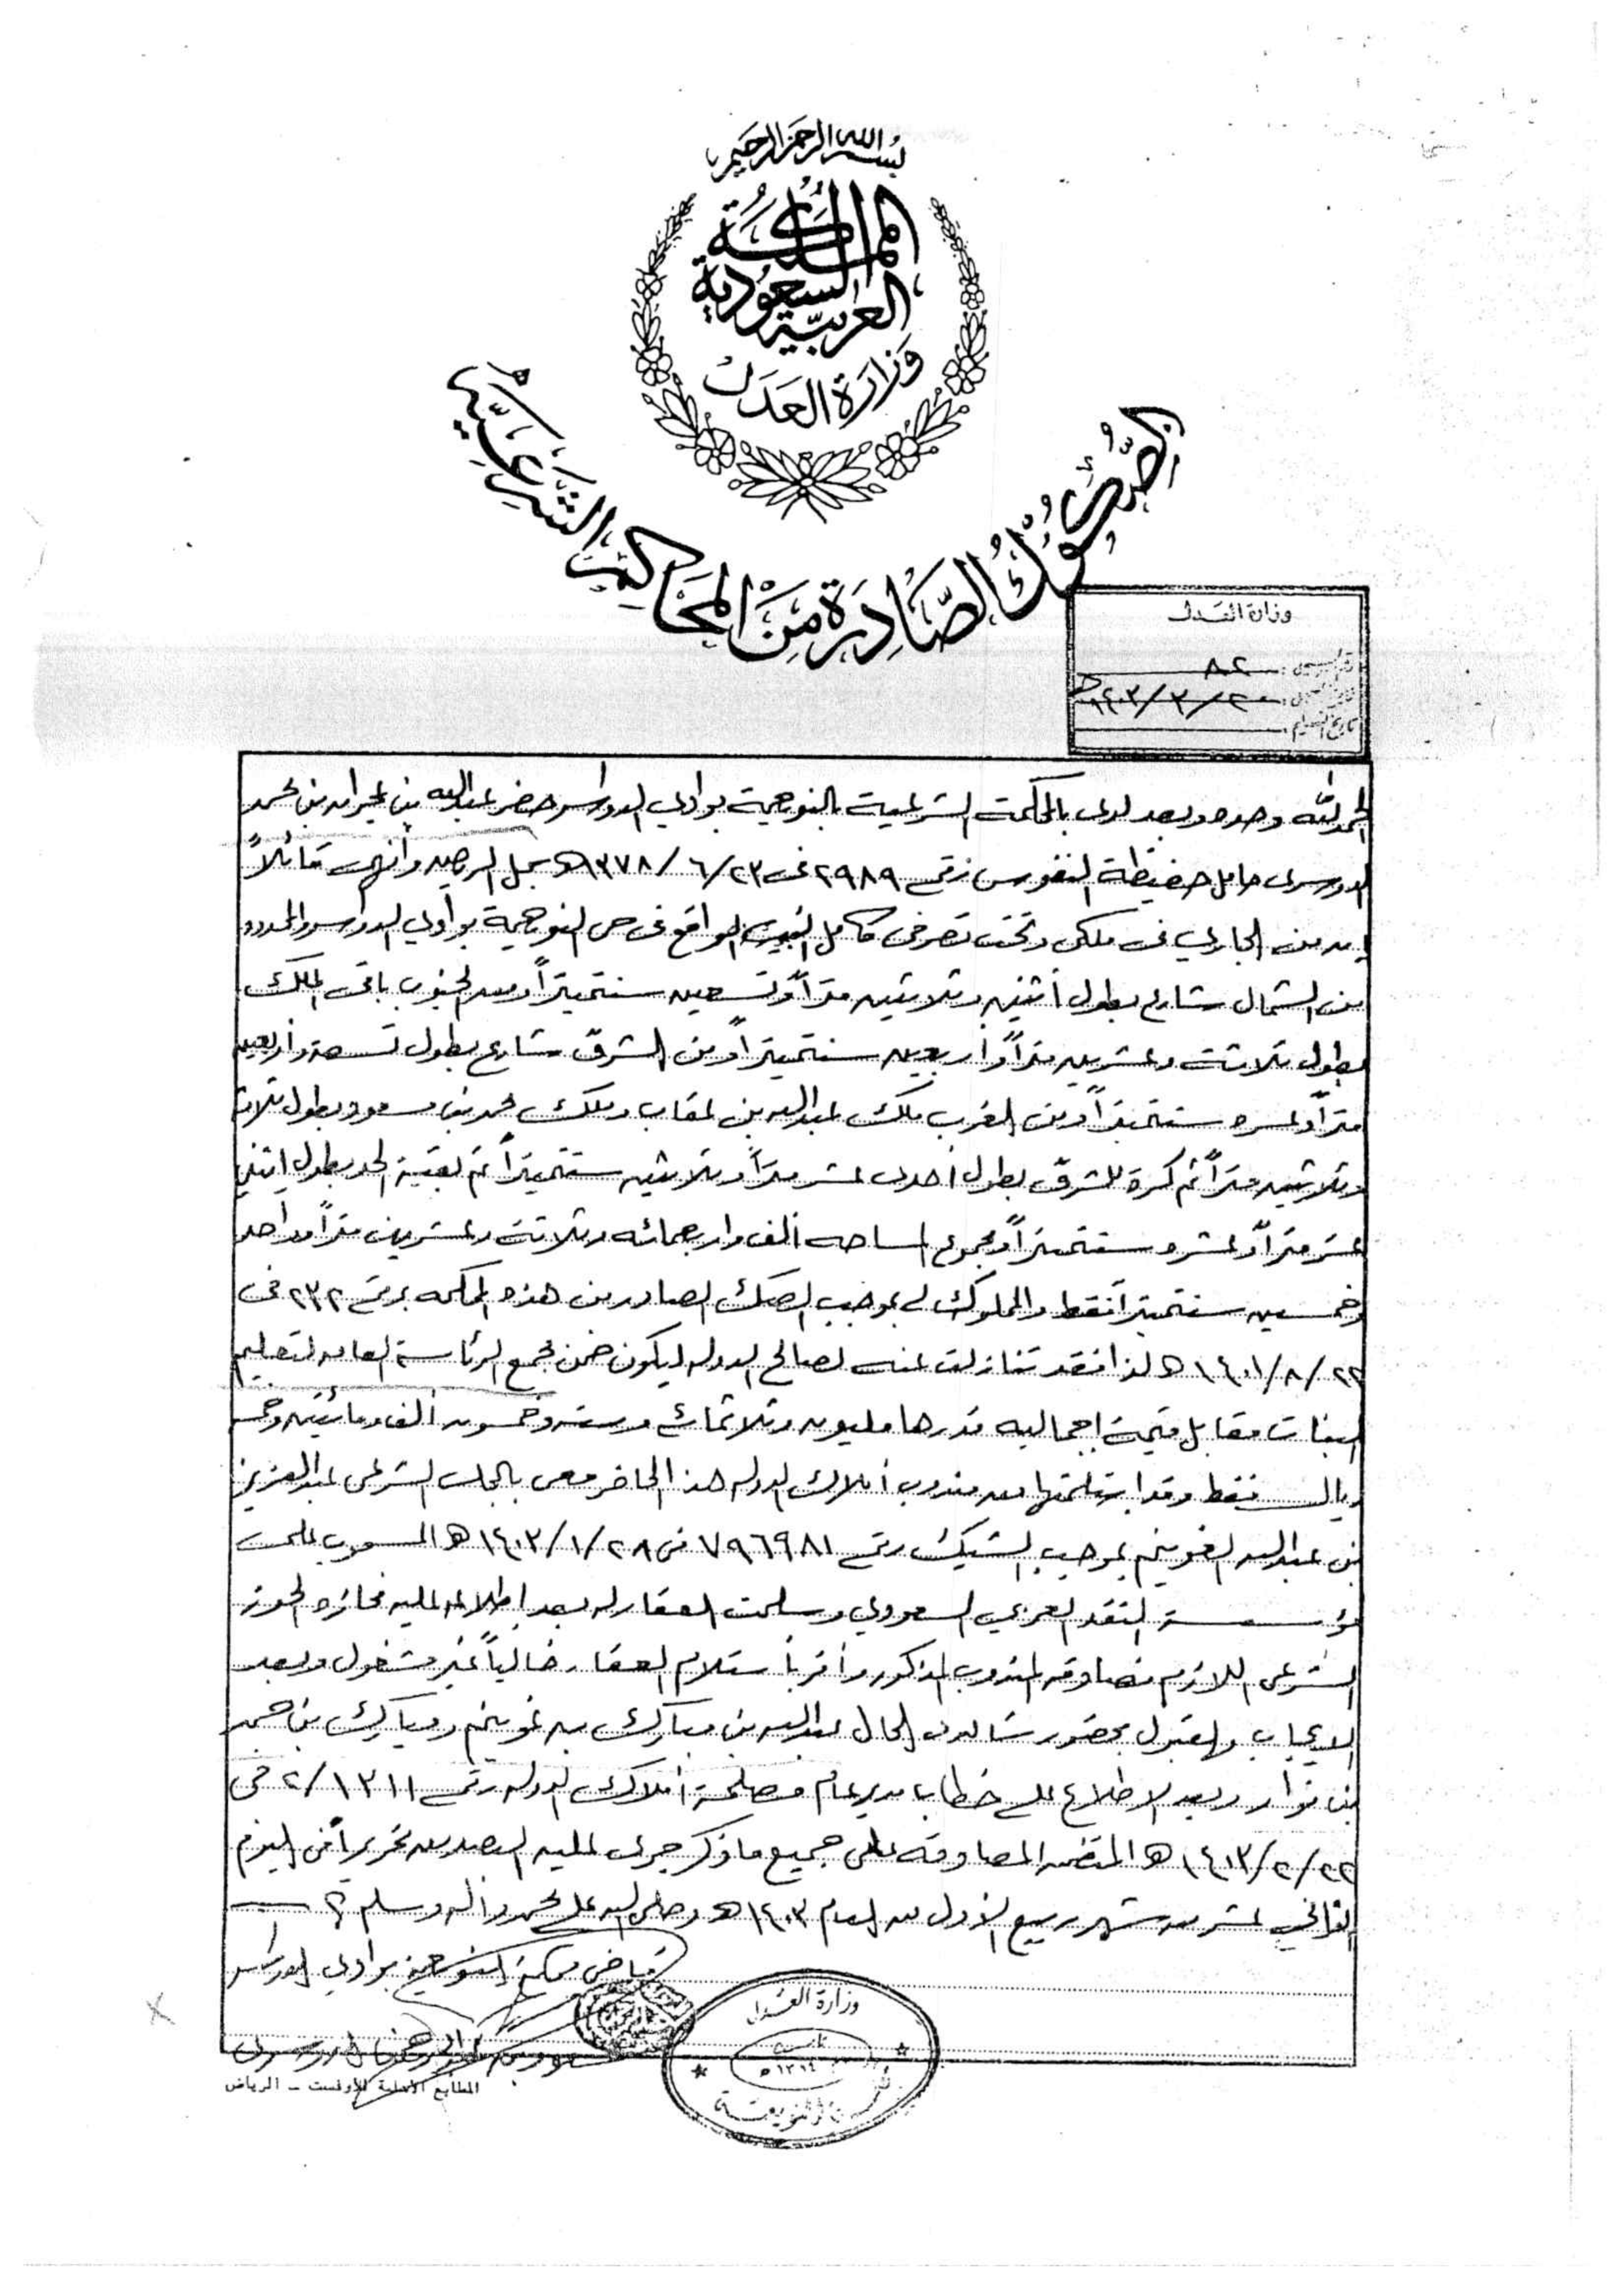 بسم الله الرحمن الرحيم
المملكة
العربية السعودية
وزارة العدل
الصكوك الصادرة من المحاكم الشرعية
وزارة العدل
رقم السجل : ٨٢
تاريخ السجل : ٢٠ / ٣ / ١٤٠٣ هـ
تاريخ التسليم :
الحمد لله وحده وبعد لدى بالمحكمة الشرعية بالنويعمة بوادي الدواسر حضر عبدالله بن بن محمد
الدوسري حامل حفيظة النفوس رقم ٢٩٨٩ في ٢٣ / ٦ / ١٣٧٨ هـ سجل وأنهى قائلاً
إن من الجاري في ملكي وتحت تصرفي كامل الواقع في حي النويعمة بوادي الدواسر والمحدود
من الشمال شارع بطول اثنين وثلاثين متراً وتسعين سنتمتراً ومن الجنوب باقي الملك
بطول ثلاثة وعشرين متراً وأربعين سنتمتراً ومن الشرق شارع بطول تسعة وأربعين
متراً وعشره سنتمتراً ومن الغرب ملك عبدالله بن عقاب وملك محمد بن مسعود بطول ثلاث
وثلاثين متراً ثم كسرة للشرق بطول أحدى عشر متراً وثلاثين سنتمتراً ثم بقية الحد بطول اثني
عشر متراً وعشره سنتمتراً ومجموع المساحه ألف واربعمائه وثلاثة وعشرين متراً وواحد
وخمسين سنتمتراً فقط والمملوك لي بموجب الصك الصادر من هذه المحكمه برقم ٢٣٢ في
٢٢ / ٨ / ١٤٠١ هـ لذا فقد تنازلت عنه لصالح الدوله ليكون ضمن مجمع الرئاسة العامه لتعليم
البنات مقابل قيمة إجماليه قدرها مليون وثلاثمائه وسته وخمسون ألف ومائتين وخمسه
ريال فقط وقد استلمتها من مندوب أملاك الدوله هذا الحاضر معي بالمجلس الشرعي عبدالعزيز
بن عبدالله الغوينم بموجب الشيك رقم ٧٩٦٩٨١ في ٢٨ / ١ / ١٤٠٣ هـ المسحوب على
مؤسسة النقد العربي السعودي وسلمت العقار له بعد إطلاعه عليه فحازه الحوز
الشرعي اللازم فصادقه المندوب المذكور وأقر باستلام العقار خالياً غير مشغول وبعد
الايجاب والقبول بحضور شاهدي الحال عبدالله بن مبارك بن غوينم ومبارك بن حمد
بن وبعد الاطلاع على خطاب مدير عام مصلحة أملاك الدوله رقم ١٣١١ / ٢ في
٢٢ / ٢ / ١٤٠٣ هـ المتضمن المصادقه على جميع ما ذكر جرى عليه التصديق تحريراً في اليوم
الثاني عشر من شهر ربيع الأول من العام ١٤٠٣ هـ وصلى الله على محمد وآله وسلم
قاضي محكمة النويعمة بوادي الدواسر
وزارة العدل
١٣٦٤ هـ
المطابع الأهلية للأوفست - الرياض